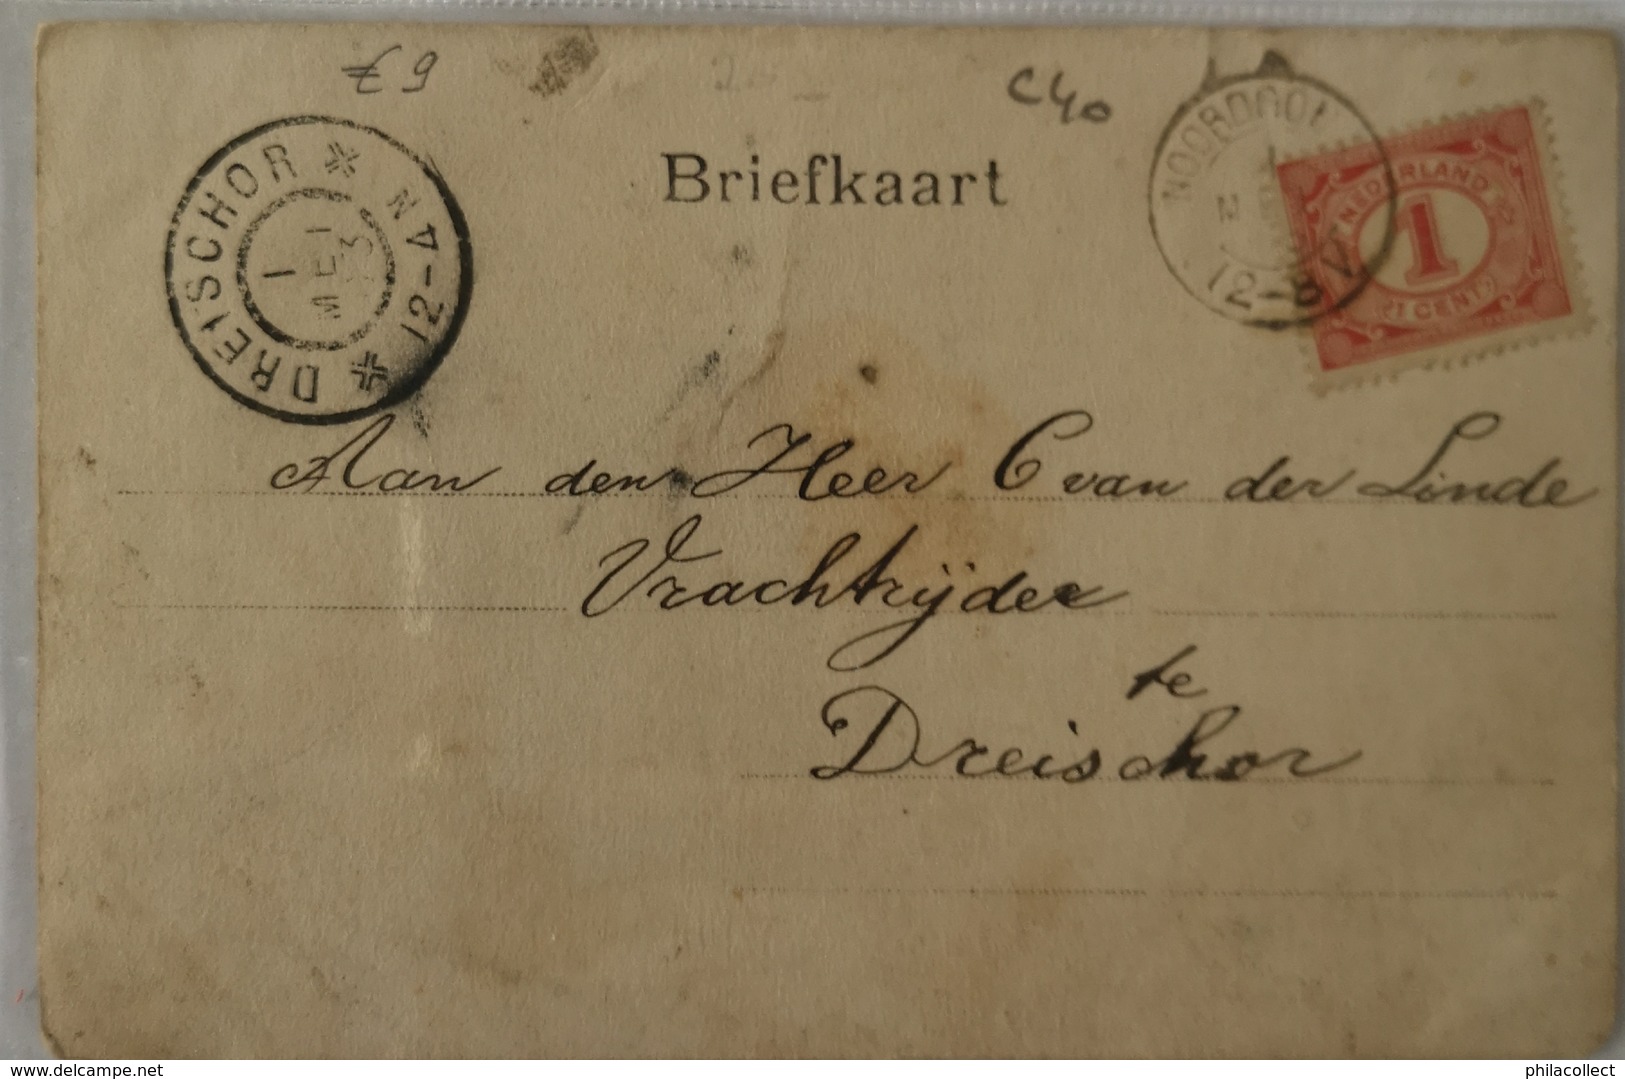 € 9
C40
Briefkaart
DREISCHOR
12-4 N
1
MEI
NOORDGOU
12-8 V
NEDERLAND
1
1 CENT
Aan den Heer C van der Linde
Vrachtrijder
te
Dreischor
delcampe.net
philacollect